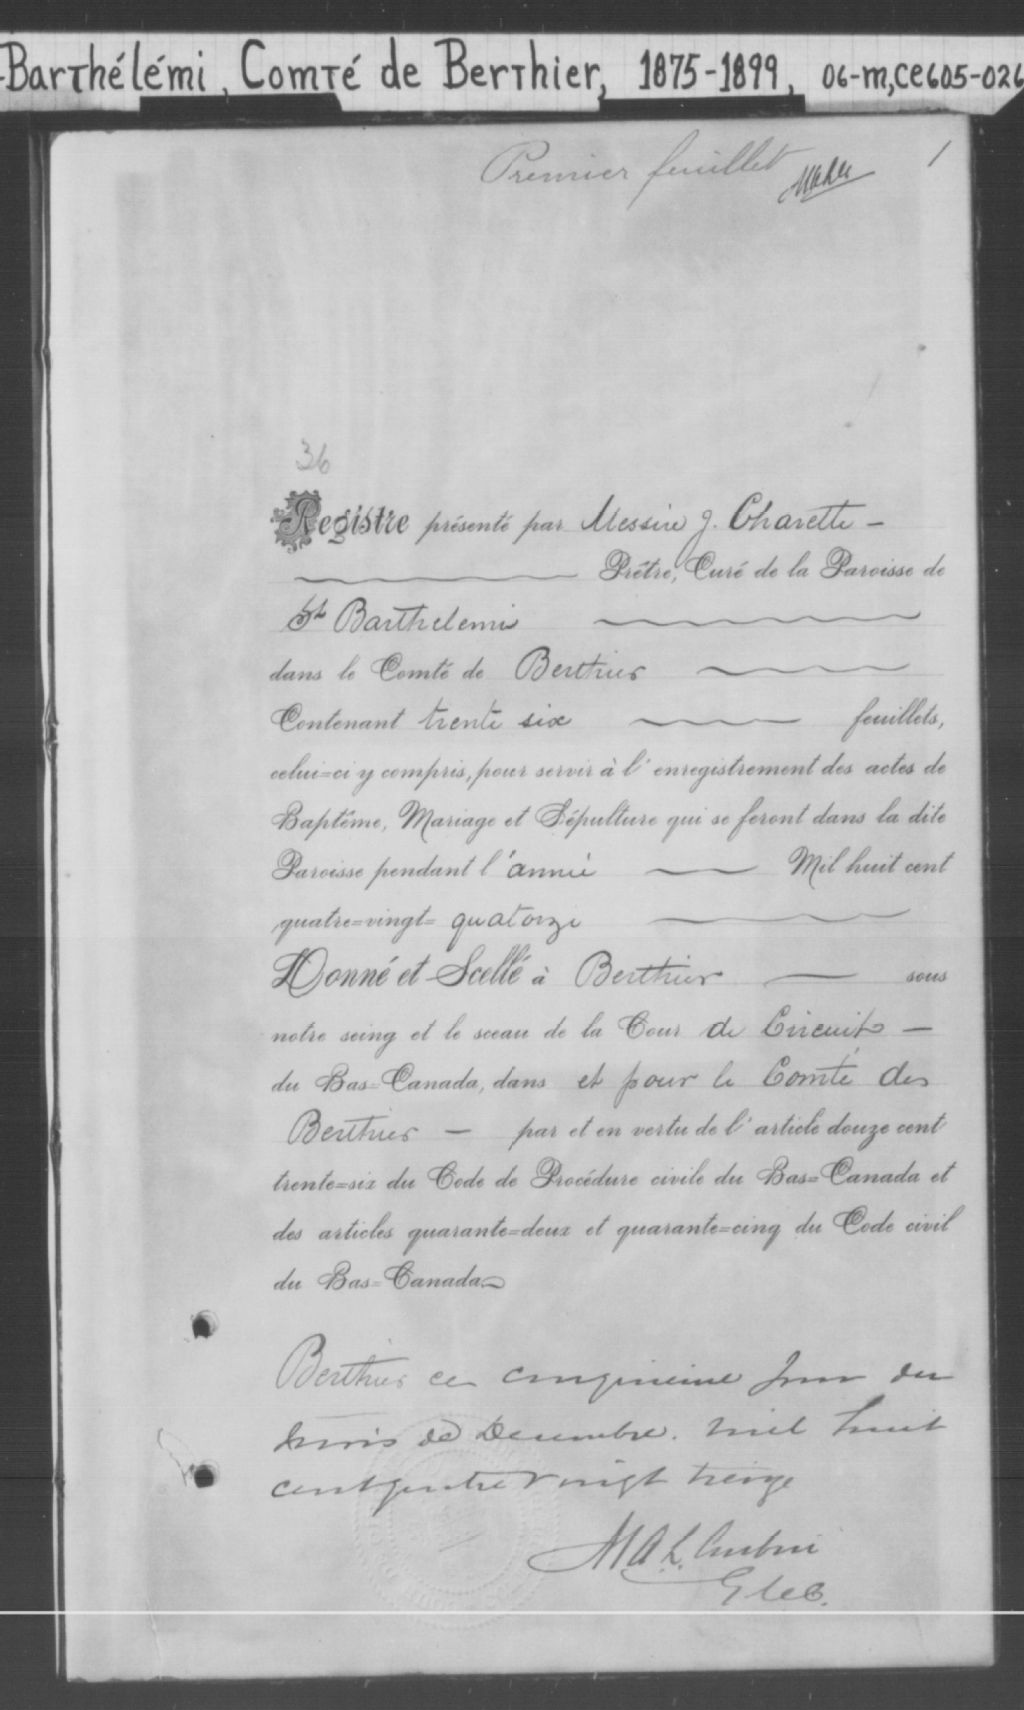 -Barthélémi, Comté de Berthier, 1875-1899, 06-m,ce605-026
Premier feuillet
1
36
Registre présenté par Messire J. Charette -
Prêtre, Curé de la Paroisse de
St Barthelemi
dans le Comté de Berthier
Contenant trente six feuillets,
celui=ci y compris, pour servir à l'enregistrement des actes de
Baptême, Mariage et Sépulture qui se feront dans la dite
Paroisse pendant l'année Mil huit cent
quatre=vingt= quatorze
Donné et Scellé à Berthier — sous
notre seing et le sceau de la Cour de Circuit —
du Bas=Canada, dans et pour le Comté de
Berthier — par et en vertu de l'article douze cent
trente=six du Code de Procédure civile du Bas=Canada et
des articles quarante=deux et quarante=cinq du Code civil
du Bas=Canada
Berthier ce cinquieme jour du
mois de Decembre. mil huit
cent quatre vingt treize
M A L Aubin
G.C.C.